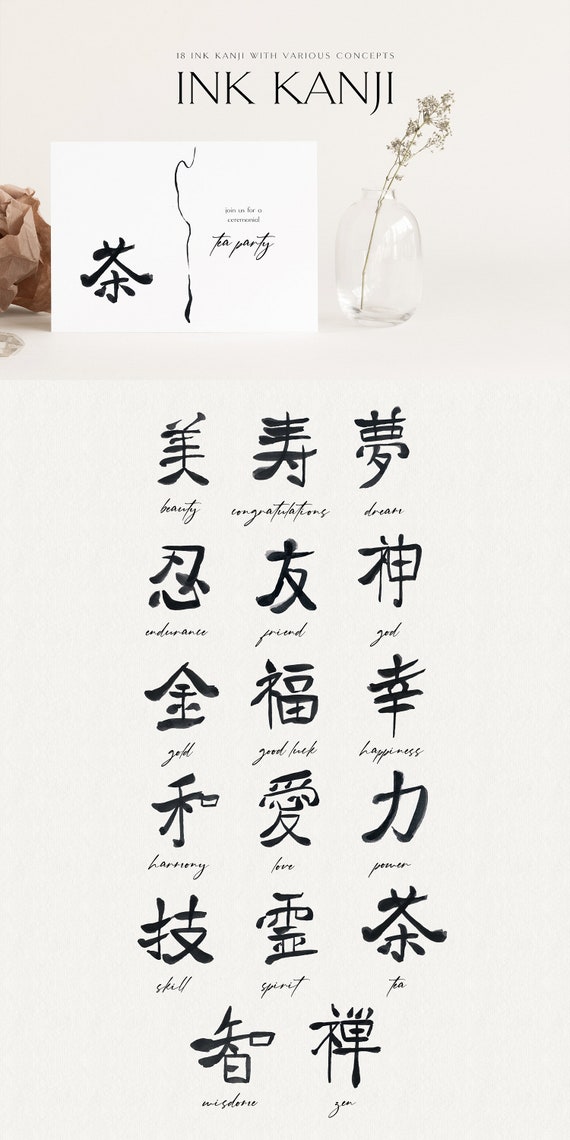 18 INK KANJI WITH VARIOUS CONCEPTS
INK KANJI
join us for a
ceremonial
tea party
茶
美 寿 夢
beauty congratulations dream
忍 友 神
endurance friend god
金 福 幸
gold good luck happiness
和 愛 力
harmony love power
技 霊 茶
skill spirit tea
智 禅
wisdome zen